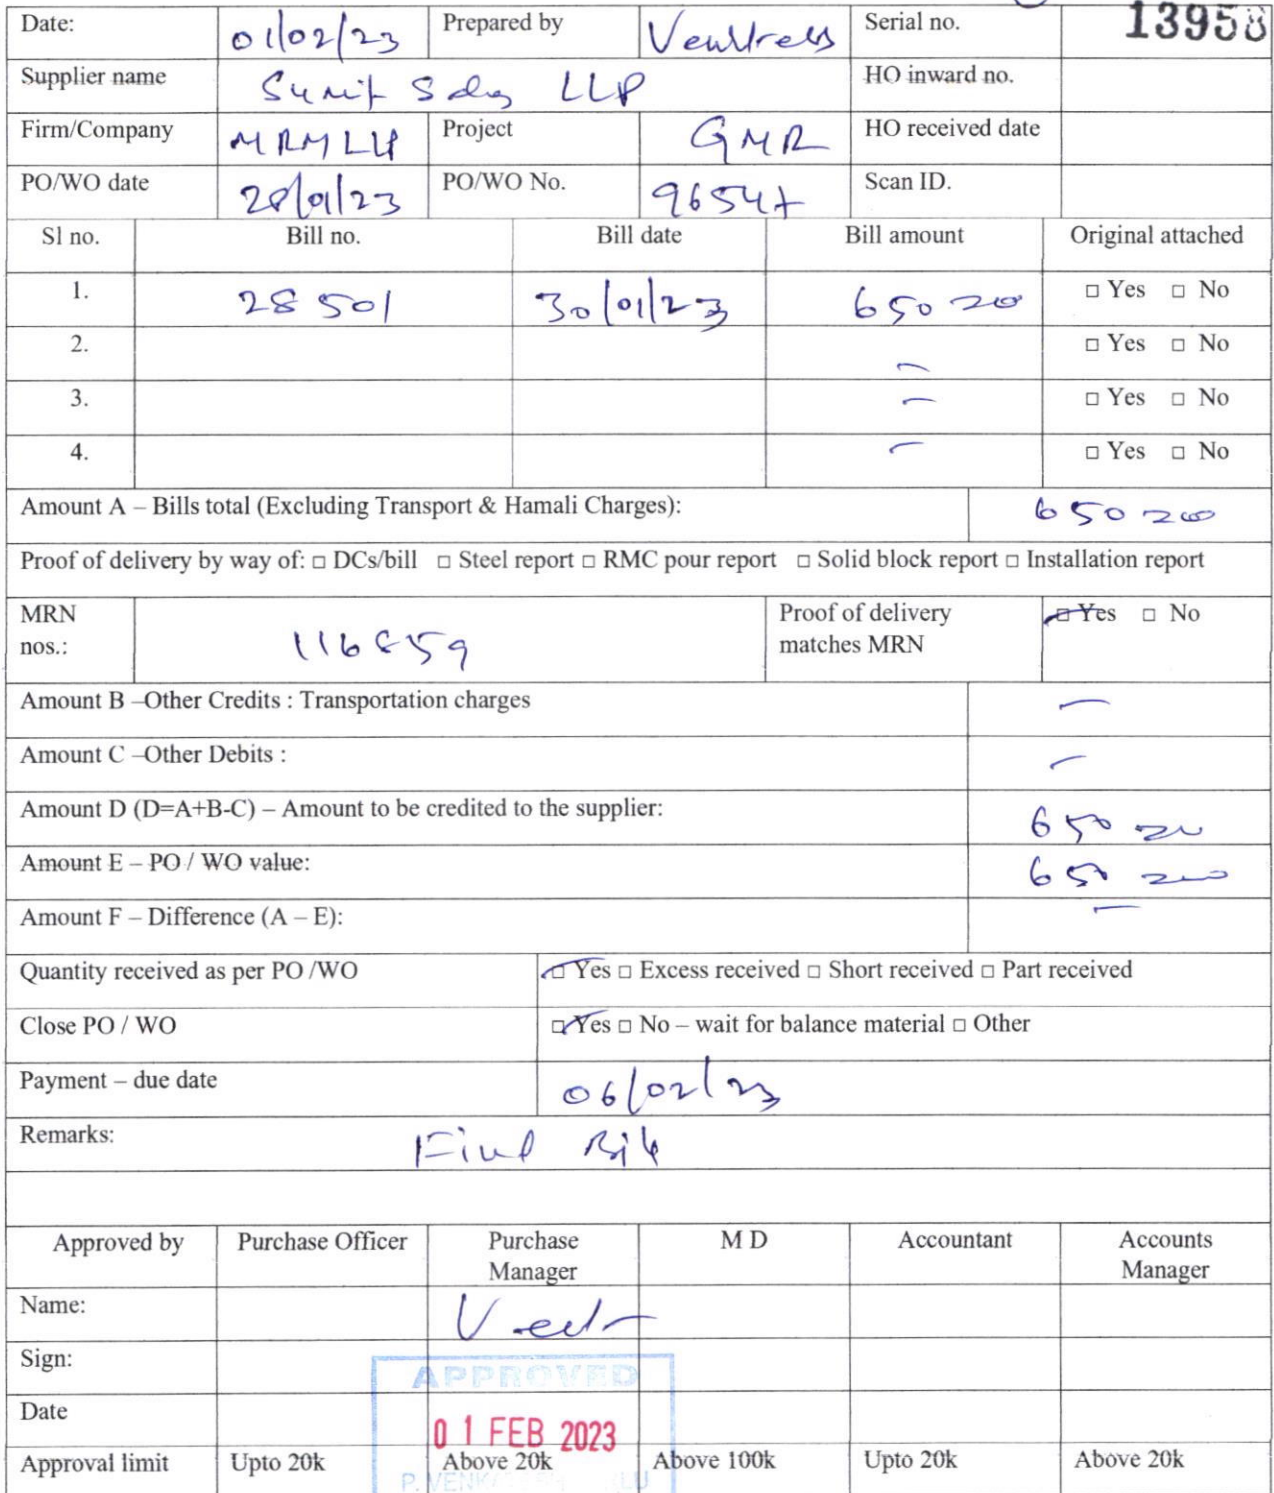 Date: 01/02/23 Prepared by Serial no. 13958
Supplier name LLP HO inward no.
Firm/Company Project GMR HO received date
PO/WO date 28/01/23 PO/WO No. Scan ID.
Sl no. Bill no. Bill date Bill amount Original attached
1. 28501 30/01/23 □ Yes □ No
2. – □ Yes □ No
3. – □ Yes □ No
4. – □ Yes □ No
Amount A – Bills total (Excluding Transport & Hamali Charges):
Proof of delivery by way of: □ DCs/bill □ Steel report □ RMC pour report □ Solid block report □ Installation report
MRN Proof of delivery □ Yes □ No
nos.: 116859 matches MRN
Amount B –Other Credits : Transportation charges –
Amount C –Other Debits : –
Amount D (D=A+B-C) – Amount to be credited to the supplier:
Amount E – PO / WO value:
Amount F – Difference (A – E): –
Quantity received as per PO /WO □ Yes □ Excess received □ Short received □ Part received
Close PO / WO □ Yes □ No – wait for balance material □ Other
Payment – due date 06/02/23
Remarks: Final Bill
Approved by Purchase Officer Purchase M D Accountant Accounts
Manager Manager
Name:
Sign:
APPROVED
Date 01 FEB 2023
Approval limit Upto 20k Above 20k Above 100k Upto 20k Above 20k